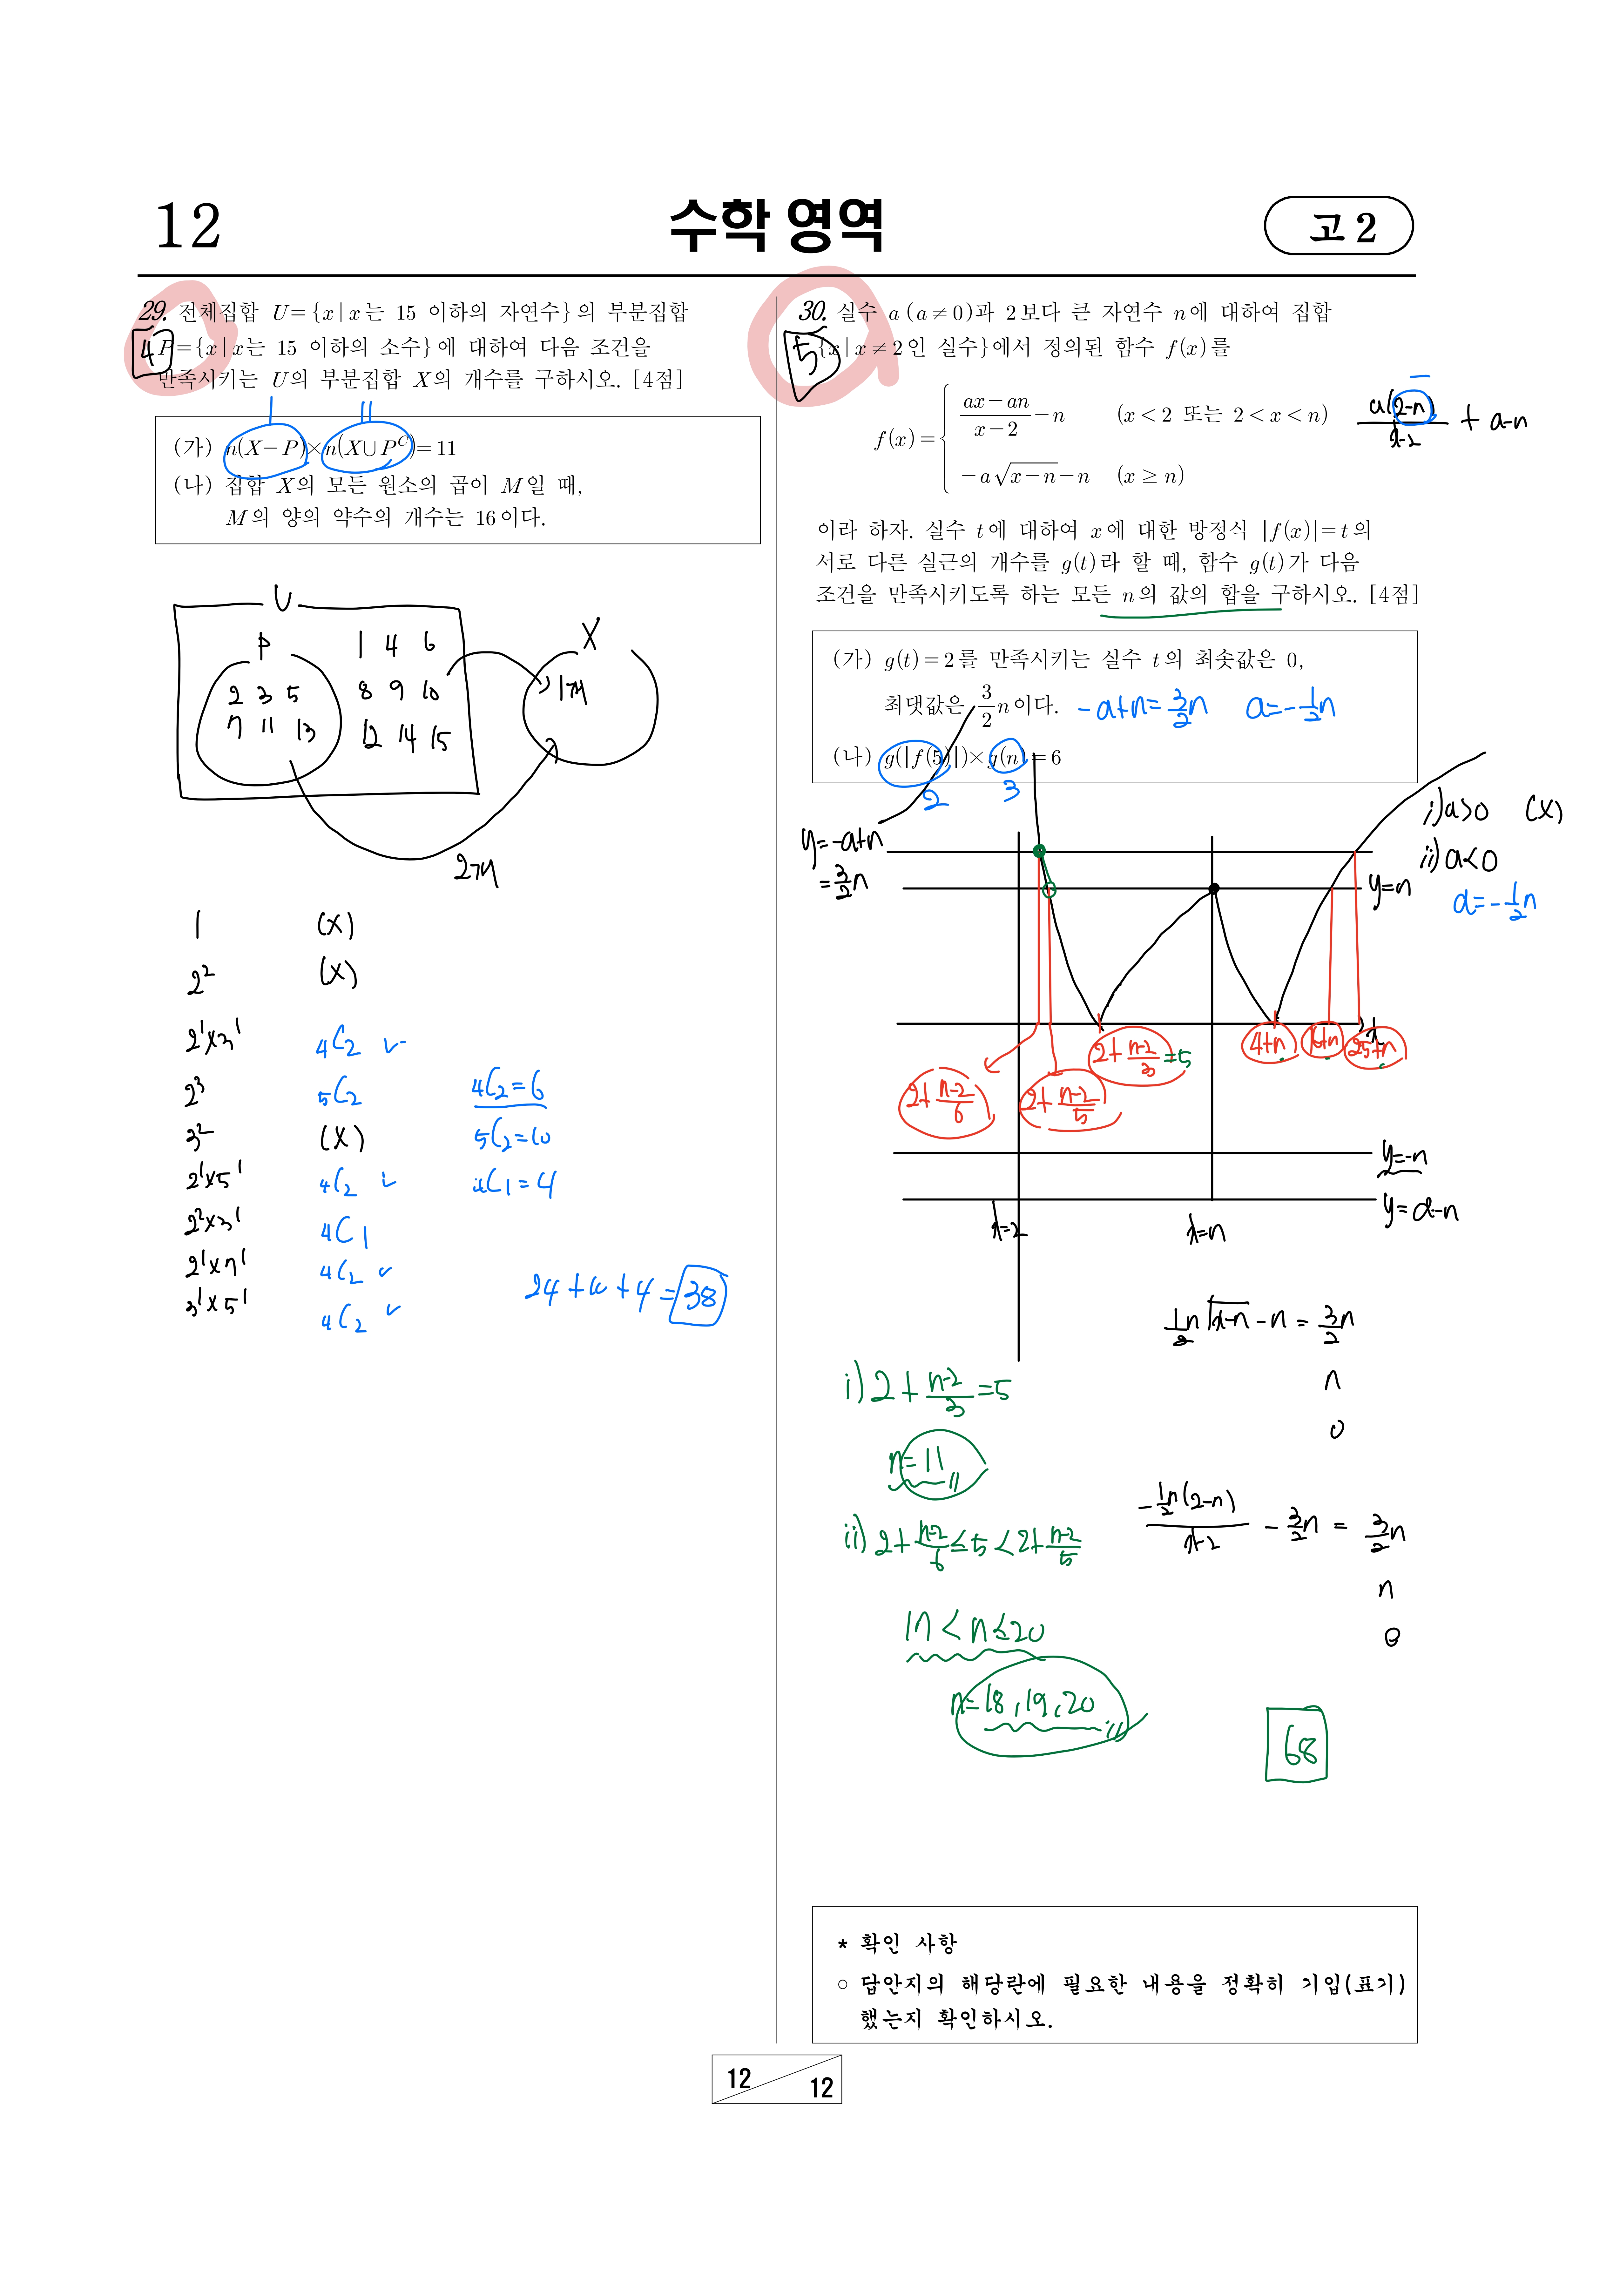 12
수학 영역
고 2
29. 전체집합 U={x|x는 15 이하의 자연수}의 부분집합
4 P={x|x는 15 이하의 소수}에 대하여 다음 조건을
만족시키는 U의 부분집합 X의 개수를 구하시오. [4점]
1 11
(가) n(X-P)×n(X∪P^C)=11
(나) 집합 X의 모든 원소의 곱이 M일 때,
M의 양의 약수의 개수는 16이다.
U
P 1 4 6 X
2 3 5 8 9 10 1개
7 11 13 12 14 15
2개
1 (X)
2² (X)
2¹×3¹ 4C2 ✓
2³ 5C2 4C2=6
3² (X) 5C2=10
2¹×5¹ 4C2 ✓ 4C1=4
2²×3¹ 4C1
2¹×7¹ 4C2 ✓
3¹×5¹ 4C2 ✓
24+10+4=38
30. 실수 a (a≠0)과 2보다 큰 자연수 n에 대하여 집합
5 {x|x≠2인 실수}에서 정의된 함수 f(x)를
f(x)={ (ax-an)/(x-2) -n (x<2 또는 2<x<n)
-a√(x-n) -n (x≥n)
a(2-n)/(x-2) + a-n
이라 하자. 실수 t에 대하여 x에 대한 방정식 |f(x)|=t의
서로 다른 실근의 개수를 g(t)라 할 때, 함수 g(t)가 다음
조건을 만족시키도록 하는 모든 n의 값의 합을 구하시오. [4점]
(가) g(t)=2를 만족시키는 실수 t의 최솟값은 0,
최댓값은 3/2 n이다. -a+n=3/2 n a=-1/2 n
(나) g(|f(5)|)×g(n)=6
2 3
i) a>0 (X)
ii) a<0
a=-1/2 n
y=-a+n
=3/2 n
y=n
x
2+(n-2)/3 =5 4+n 16+n 25+n
2+(n-2)/6 2+(n-2)/5
y=-n
y=a-n
x=2 x=n
1/2 n√(x-n) -n = 3/2 n
n
0
i) 2+(n-2)/3=5
n=11
-1/2 n(2-n)/(x-2) - 3/2 n = 3/2 n
n
0
ii) 2+(n-2)/6≤5<2+(n-2)/5
17<n≤20
n=18,19,20
68
* 확인 사항
○ 답안지의 해당란에 필요한 내용을 정확히 기입(표기)
했는지 확인하시오.
12 12